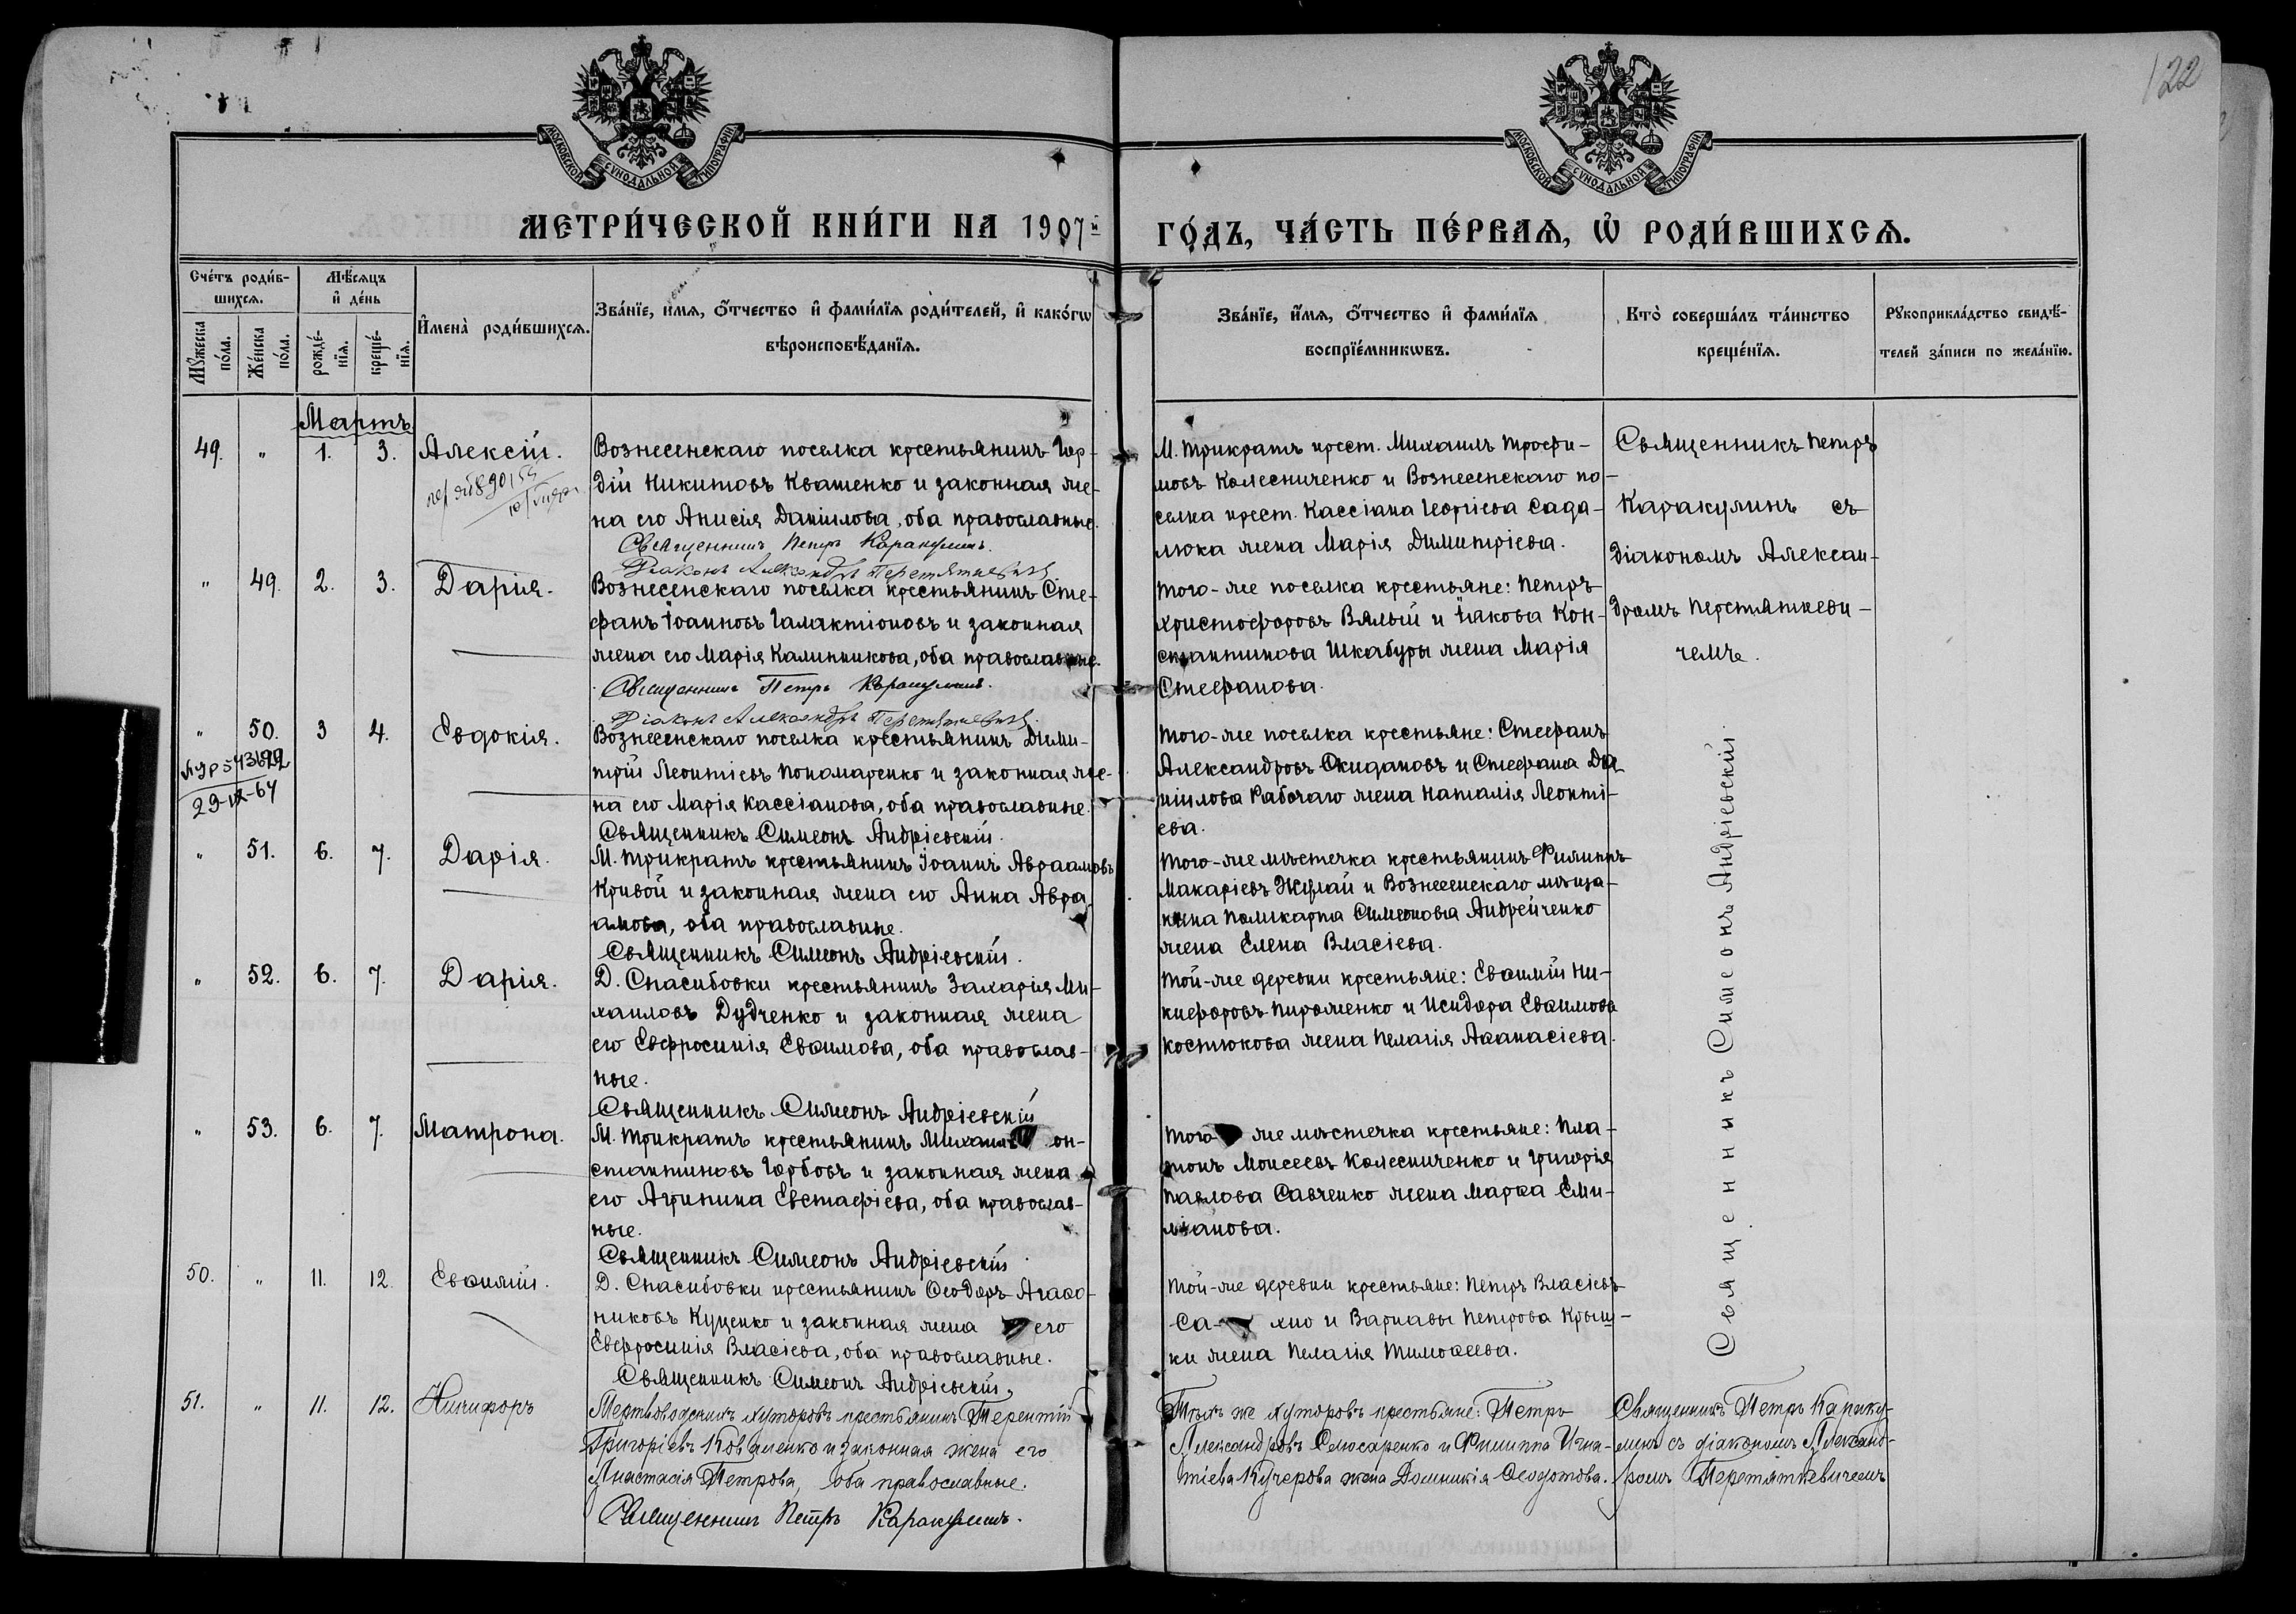 122
МОСКОВСКОЙ СѴНОДАЛЬНОЙ ТИПОГРАФІИ
МОСКОВСКОЙ СѴНОДАЛЬНОЙ ТИПОГРАФІИ
МЕТРИ́ЧЕСКОЙ КНИ́ГИ НА 1907й
ГО́ДЪ, ЧА́СТЬ ПЕ́РВАѦ, Ѡ҆ РОДИ́ВШИХСѦ.
Сче́тъ роди́в-
шихсѧ.
Мꙋ́жеска по́ла.
Же́нска по́ла.
Мѣ́сѧцъ
и҆ де́нь
рожде́-
нїѧ.
креще́-
нїѧ.
И҆мена̀ роди́вшихсѧ.
Зва́нїе, и҆́мѧ, ѻ҆́тчество и҆ фами́лїѧ роди́телей, и҆ како́гѡ
вѣроисповѣ́данїѧ.
Зва́нїе, и҆́мѧ, ѻ҆́тчество и҆ фами́лїѧ
воспрїе́мникѡвъ.
Кто̀ соверша́лъ та́инство
креще́нїѧ.
Рꙋкоприкла́дство свидѣ́-
телей за́писи по жела́нїю.
Мартъ
49. " 1. 3. Алексій.
Вознесенскаго поселка крестьянинъ Гор-
дій Никитовъ Квашенко и законная же-
на его Анисія Даніилова, оба православные.
Священникъ Петръ Каракулинъ.
Діаконъ Александръ Перетяткевичъ.
М. Трикратъ крест. Михаилъ Трофи-
мовъ Колесниченко и Вознесенскаго по-
селка крест. Кассіана Георгіева Сада-
люка жена Марія Димитріева.
Священникъ Петръ
Каракулинъ съ
діакономъ Алексан-
дромъ Перетяткеви-
чемъ.
" 49. 2. 3. Дарія.
Вознесенскаго поселка крестьянинъ Сте-
фанъ Іоанновъ Галактіоновъ и законная
жена его Марія Калинникова, оба православные.
Священникъ Петръ Каракулинъ.
Діаконъ Александръ Перетяткевичъ.
Того-же поселка крестьяне: Петръ
Христофоровъ Вялый и Іакова Кон-
стантинова Шкабуры жена Марія
Стефанова.
" 50. 3 4. Евдокія.
29-IX-64
Вознесенскаго поселка крестьянинъ Дими-
трій Леонтіевъ Пономаренко и законная же-
на его Марія Кассіанова, оба православные.
Священникъ Симеонъ Андріевскій.
Того-же поселка крестьяне: Стефанъ
Александровъ Окидановъ и Стефана Да-
ніилова Рабочаго жена Наталія Леонті-
ева.
" 51. 6. 7. Дарія.
М. Трикратъ крестьянинъ Іоаннъ Авраамовъ
Кривой и законная жена его Анна Авра-
амова, оба православные.
Священникъ Симеонъ Андріевскій.
Того-же мѣстечка крестьянинъ Филиппъ
Макаріевъ Жулай и Вознесенскаго мѣща-
нина Поликарпа Симеонова Андрейченко
жена Елена Власіева.
" 52. 6. 7. Дарія.
Д. Спасибовки крестьянинъ Захарія Ми-
хаиловъ Дудченко и законная жена
его Евфросинія Евѳимова, оба православ-
ные.
Священникъ Симеонъ Андріевскій
Той-же деревни крестьяне: Евѳимій Ни-
кифоровъ Пироженко и Исидора Евѳимова
Костюкова жена Пелагія Аѳанасіева.
" 53. 6. 7. Матрона.
М. Трикратъ крестьянинъ Михаилъ он-
стантиновъ Горбовъ и законная жена
его Агрипина Евстафіева, оба православ-
ные.
Священникъ Симеонъ Андріевскій
Того же мѣстечка крестьяне: Пла-
тонъ Моисеевъ Колесниченко и Григорія
Павлова Савченко жена Марѳа Еми-
ліанова.
50. " 11. 12. Евѳимій.
Д. Спасибовки крестьянинъ Ѳеодоръ Агаѳо-
никовъ Куценко и законная жена его
Евфросинія Власіева, оба православные.
Священникъ Симеонъ Андріевскій.
Той-же деревни крестьяне: Петръ Власіевъ
Са- хно и Варнавы Петрова Крыш-
ки жена Пелагія Тимоѳеева.
Священникъ Симеонъ Андріевскій.
51. " 11. 12. Никифоръ
Мертвоводскихъ хуторовъ крестьянинъ Терентій
Григоріевъ Коваленко и законная жена его
Анастасія Петрова, оба православные.
Священникъ Петръ Каракулинъ.
Тѣхъ же хуторовъ крестьяне: Петръ
Александровъ Слюсаренко и Филиппа Игна-
тіева Кучерова жена Домникія Ѳеодотова.
Священникъ Петръ Караку-
линъ съ діакономъ Александ-
ромъ Перетяткевичемъ